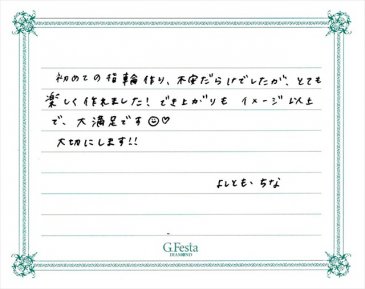 初めての指輪作り、不安だらけでしたが、とても
楽しく作れました！でき上がりも イメージ以上
で、大満足です☺♡
大切にします!!
よしとも・ちな
G.Festa
DIAMOND